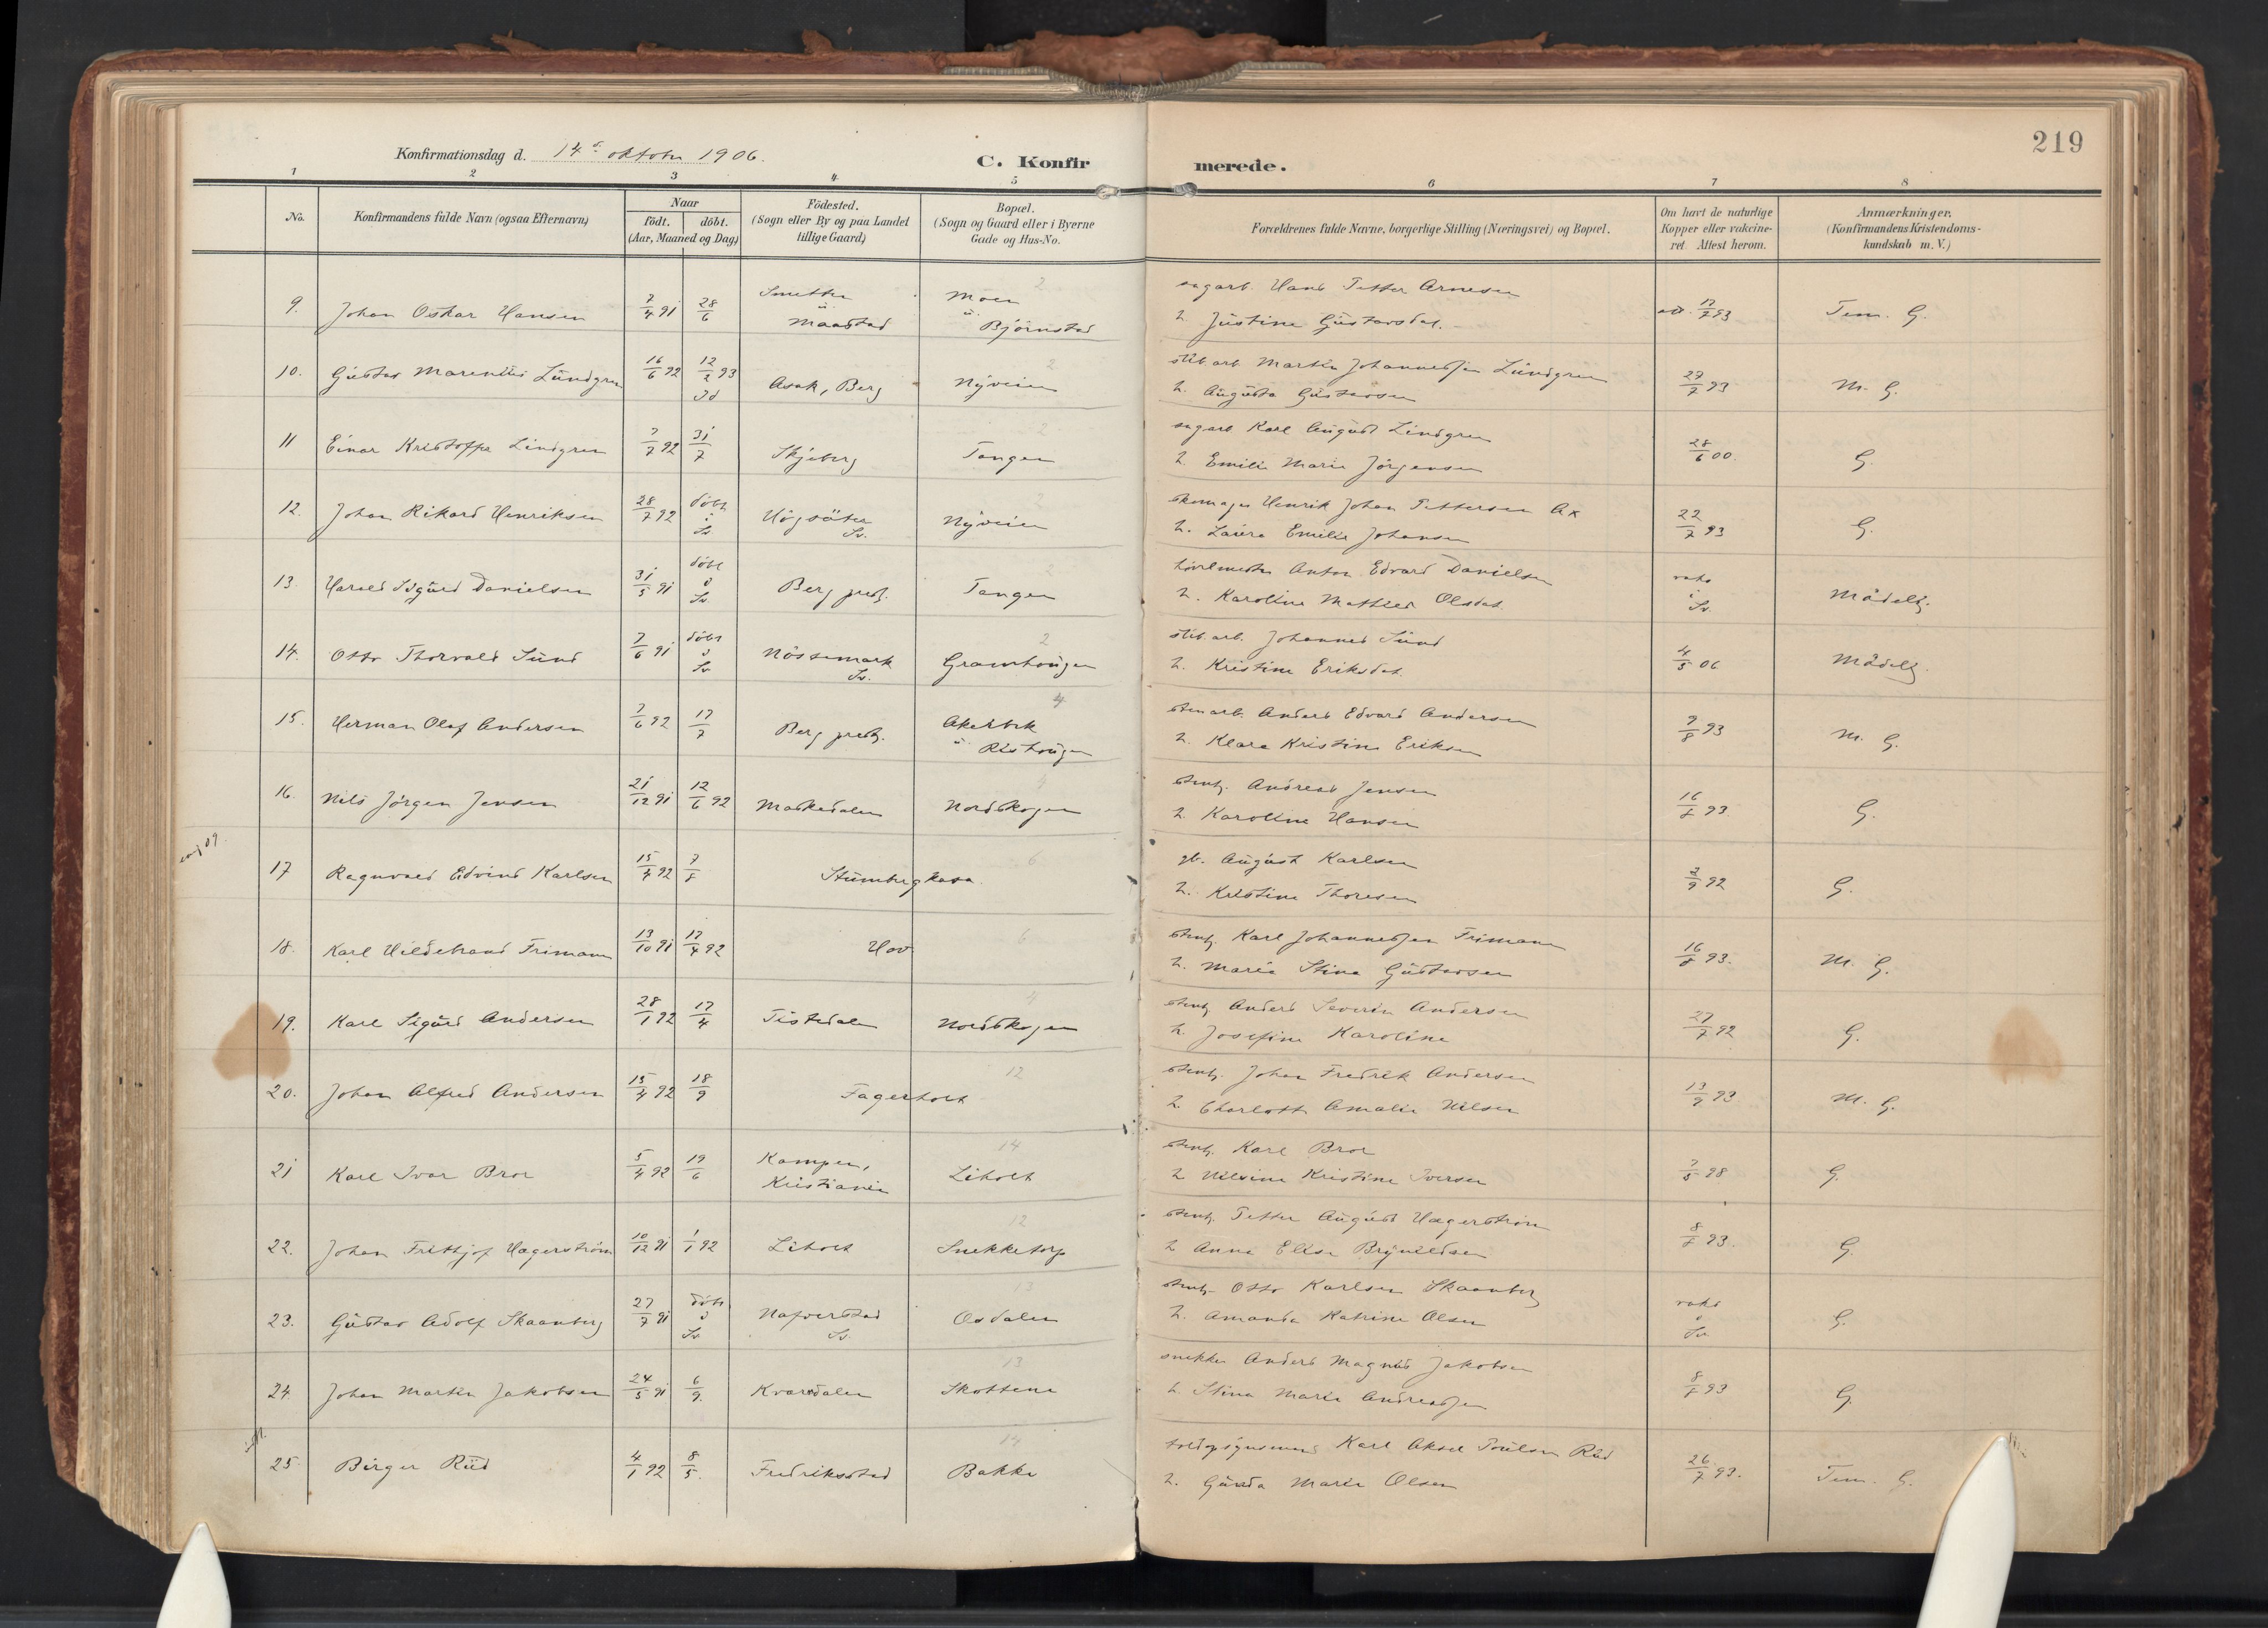 219
Konfirmationsdag d. 14de oktober 1906.
C. Konfirmerede.
1 2 3 4 5 6 7 8
No.
Konfirmandens fulde Navn (ogsaa Efternavn)
Naar
födt. döbt.
(Aar, Maaned og Dag)
Födested.
(Sogn eller By og paa Landet
tillige Gaard)
Bopæl.
(Sogn og Gaard eller i Byerne
Gade og Hus-No.
Forældrenes fulde Navne, borgerlige Stilling (Næringsvei) og Bopæl.
Om havt de naturlige
Kopper eller vakcine-
ret. Attest herom.
Anmærkninger.
(Konfirmandens Kristendoms-
kundskab m. V.)
9. Johan Oskar Hansen 7/4 91 28/6 Smetten u. Maastad Moen u. Björnstad 2
sagarb. Hans Petter Arnesen
h. Justine Gustavsdat. 17/7 93 Tem. G.
10. Gustav Marentius Lundgren 16/6 92 12/2 93 Id Asak, Berg Nyveien 2
slib.arb. Martin Johannessen Lundgren
h. Augusta Gustavsen 27/7 93 M. G.
11 Einar Kristoffer Lindgren 7/7 92 31/7 Skjeberg Tangen 2
sagarb. Karl August Lindgren
h. Emilie Marie Jörgensen 28/6 00. G.
12. Johan Rikard Henriksen 28/7 92 döbt i Sv. Högsäter Sv. Nyveien 2
skomager Henrik Johan Pettersen
h. Laura Emilie Johansen 22/7 93 G.
13. Harald Sigurd Danielsen 31/5 91 döbt i Sv. Berg prestg. Tangen 2
hövlmester Anton Edvard Danielsen
h. Karoline Mathea Olsdat. vaks i Sv. Mådelg.
14. Otto Thorvald Sund 7/6 91 döbt i Sv Nössemark Sv. Gramhougen 2
slib.arb. Johannes Sund
h. Kristine Eriksdat. 4/5 06 Mådelg.
15. Herman Olaf Andersen 7/6 92 17/7 Berg prestg. Akerbek u. Rishougen 4
stenarb. Anders Edvard Andersen
h. Klara Kristine Eriksen 9/8 93 M. G.
16. Nils Jörgen Jensen 21/12 91 12/6 92 Maskedalen Nordskogen 4
stenh. Andreas Jensen
h. Karoline Hansen 16/8 93 G.
17 Ragnvald Edvind Karlsen 15/4 92 7/8 Stumbergkasa 6
gb. August Karlsen
h. Kristine Thoresen 2/9 92 G.
18. Karl Hildebrand Frimann 13/10 91 17/4 92 Hov 6
stenh. Karl Johannessen Frimann
h. Maria Stina Gustavsen 16/8 93. M. G.
19. Karl Sigurd Andersen 28/1 92 17/4 Tistedalen Nordskogen 4
stenh. Anders Severin Andersen
h. Josefine Karoline 27/7 92 G.
20. Johan Alfred Andersen 15/4 92 18/9 Fagerholt 12
stenh. Johan Fredrik Andersen
h. Charlotte Amalie Nilsen 13/9 93 M. G.
21 Karl Ivar Bror 5/4 92 19/6 Kampen, Kristiania Liholt 14
stenh. Karl Bror
h Nilsine Kristine Iversen 7/5 98 G.
22. Johan Frithjof Hagerström 10/12 91 1/1 92 Liholt Snekketorp 12
stenh. Petter August Hagerström
h Anna Elise Brynildsen 8/8 93. G.
23. Gustav Adolf Skaanberg 27/7 91 döbt i Sv. Nafverstad Sv. Osdalen 13
stenh. Otto Karlsen Skaanberg
h. Amanda Katrine Olsen vaks i Sv G.
24. Johan Martin Jakobsen 24/5 91 6/9. Kvardalen Skottene 13
snekker Anders Magnus Jakobsen
h Stina Maria Andreassen 8/8 93 G.
25. Birger Rud 4/1 92 8/5. Fredriksstad Bakke 14
toldopsynsmand Karl Aksel Poulsen Rud
h. Gunda Marie Olsen 26/7 93. Tem. G.